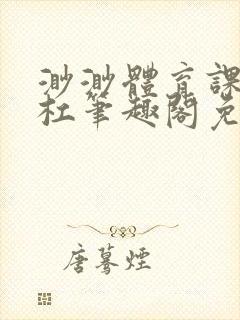 渺渺體育課
杜筆趣閣免
唐驀煙